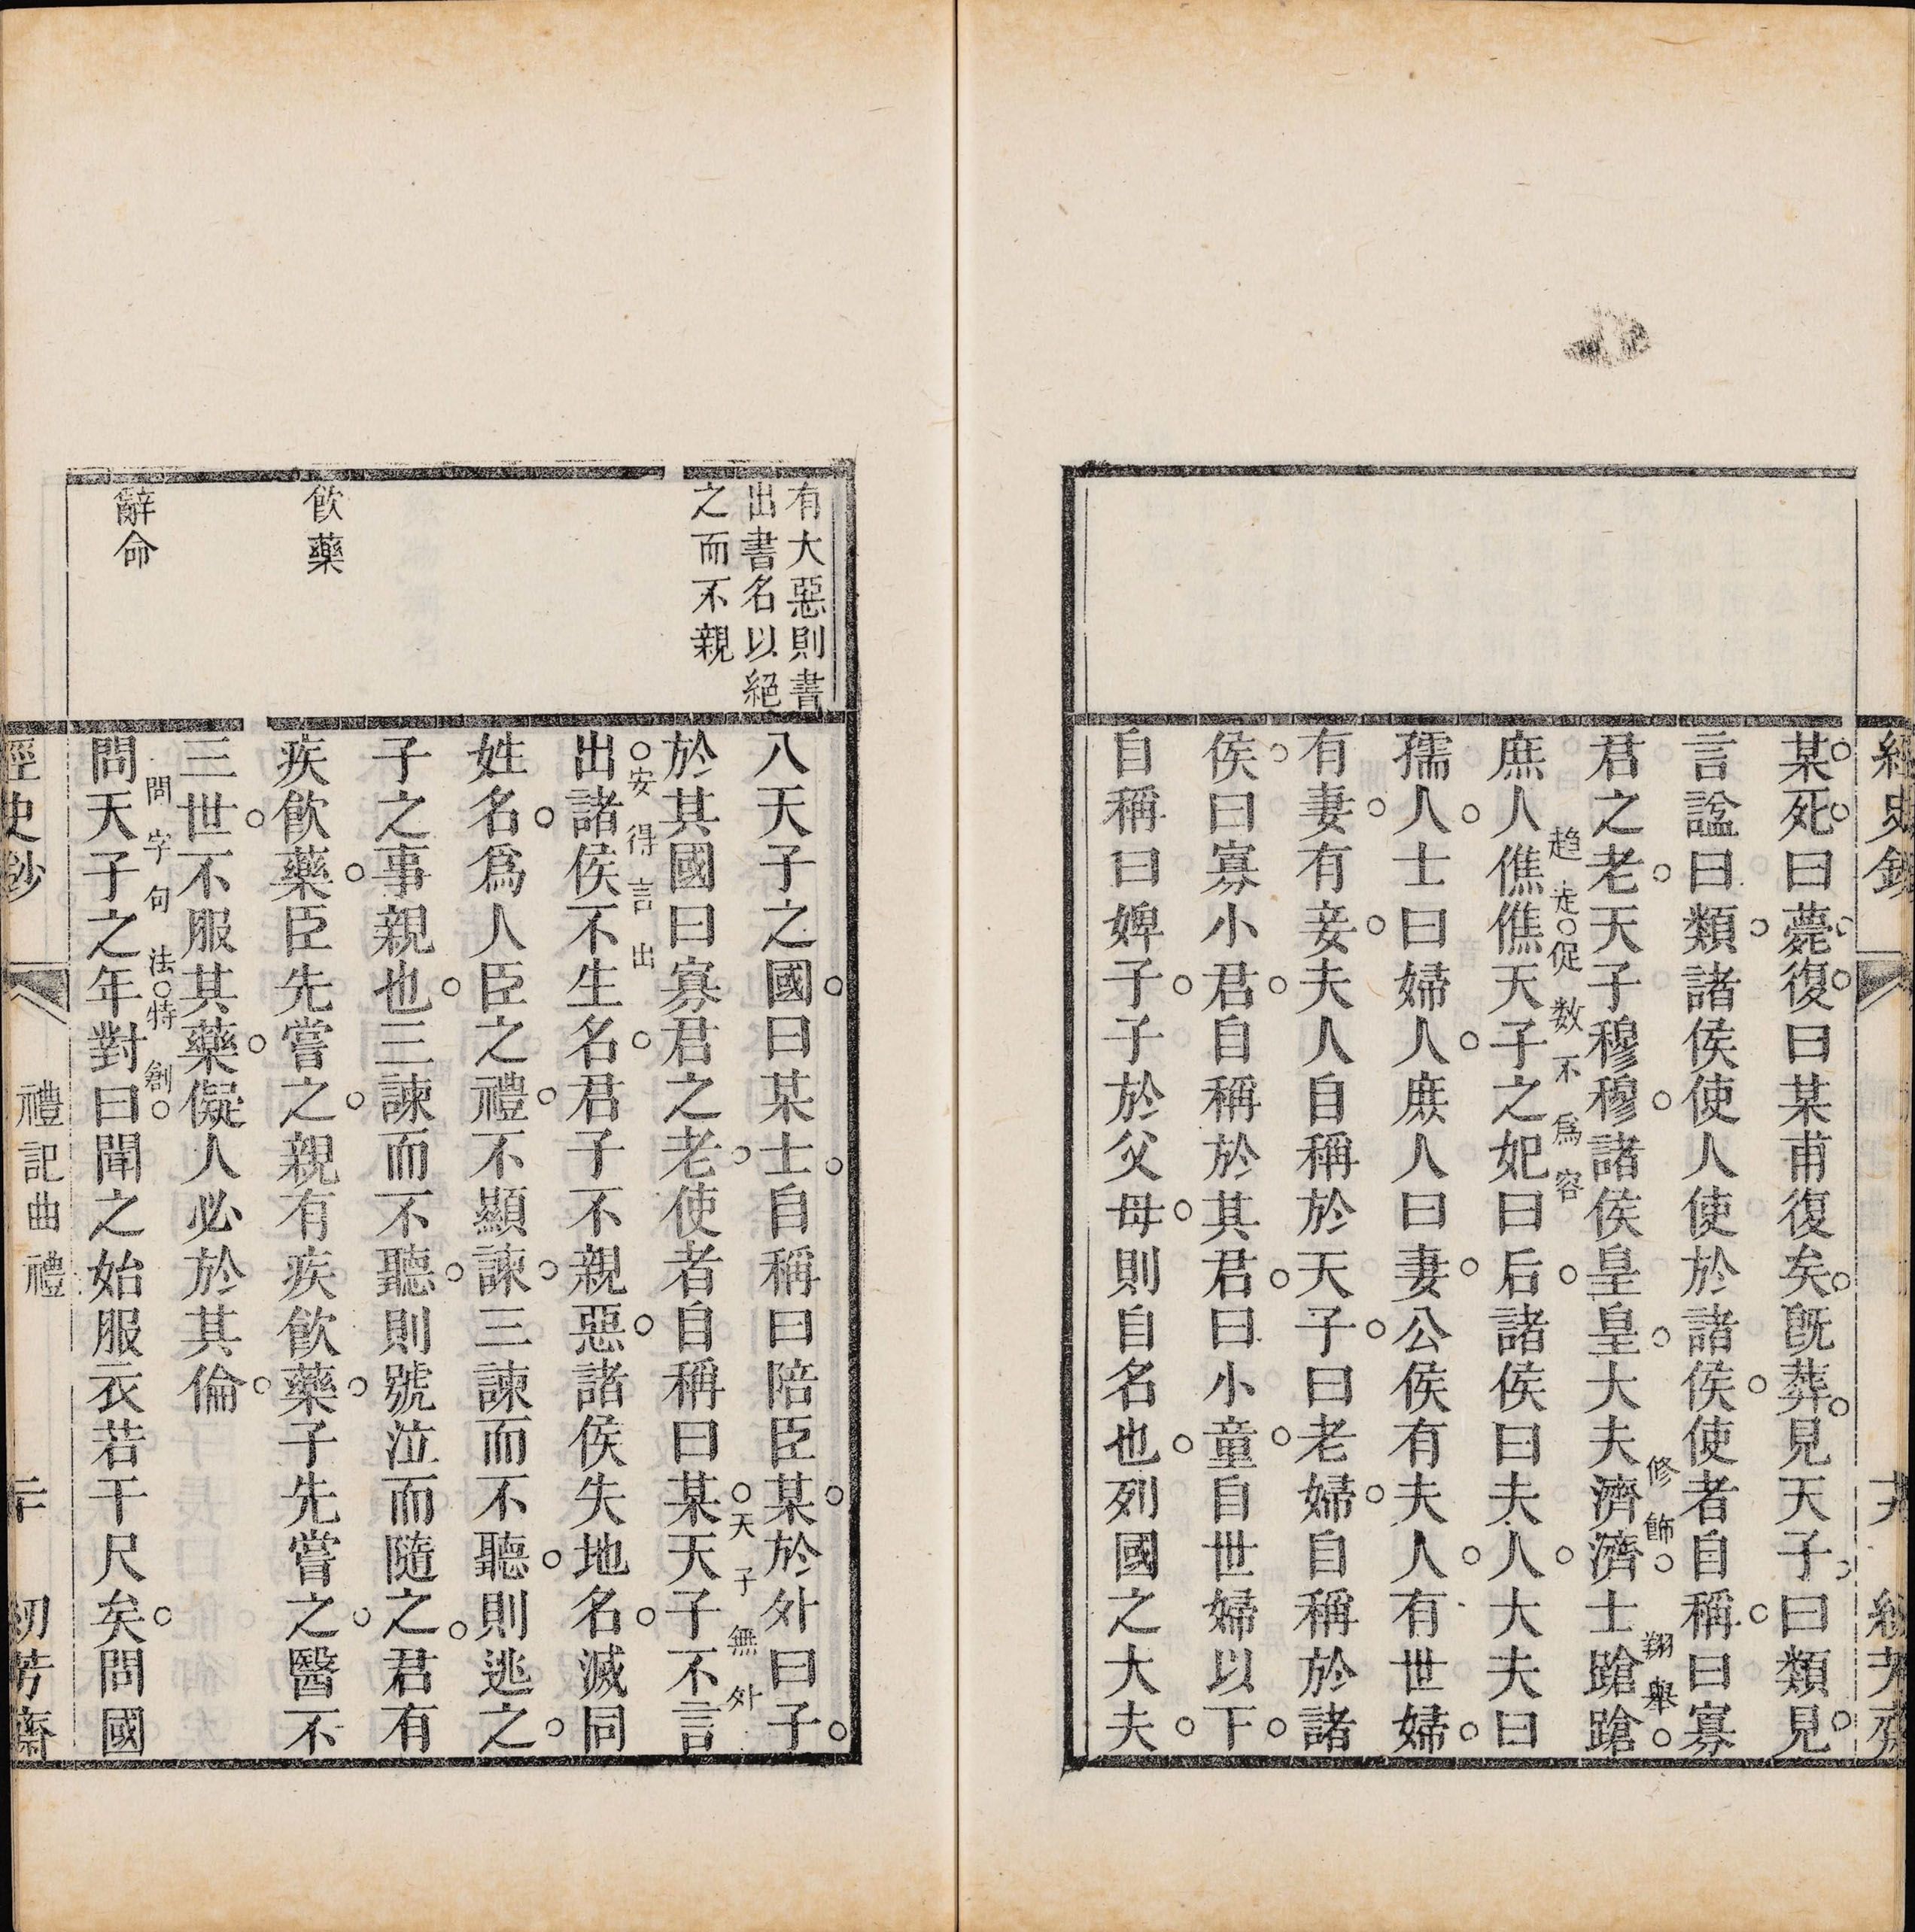 經史鈔
某死曰薨復曰某甫復矣既葬見天子曰類見
言諡曰類諸侯使人使於諸侯使者自稱曰寡
修飾
翔舉
君之老天子穆穆諸侯皇皇大夫濟濟士蹌蹌
趋走促数不爲容
庶人僬僬天子之妃曰后諸侯曰夫人大夫曰
孺人士曰婦人庶人曰妻公侯有夫人有世婦
有妻有妾夫人自稱於天子曰老婦自稱於諸
侯曰寡小君自稱於其君曰小童自世婦以下
自稱曰婢子子於父母則自名也列國之大夫
有大惡則書
出書名以絕
之而不親
飮藥
辭命
八天子之國曰某士自稱曰陪臣某於外曰子
天子無外
於其國曰寡君之老使者自稱曰某天子不言
安得言出
出諸侯不生名君子不親惡諸侯失地名滅同
姓名爲人臣之禮不顯諫三諫而不聽則逃之
子之事親也三諫而不聽則號泣而隨之君有
疾飮藥臣先嘗之親有疾飮藥子先嘗之醫不
三世不服其藥儗人必於其倫
問字句法特創
問天子之年對曰聞之始服衣若干尺矣問國
經史鈔
禮記曲禮
紉芳齋